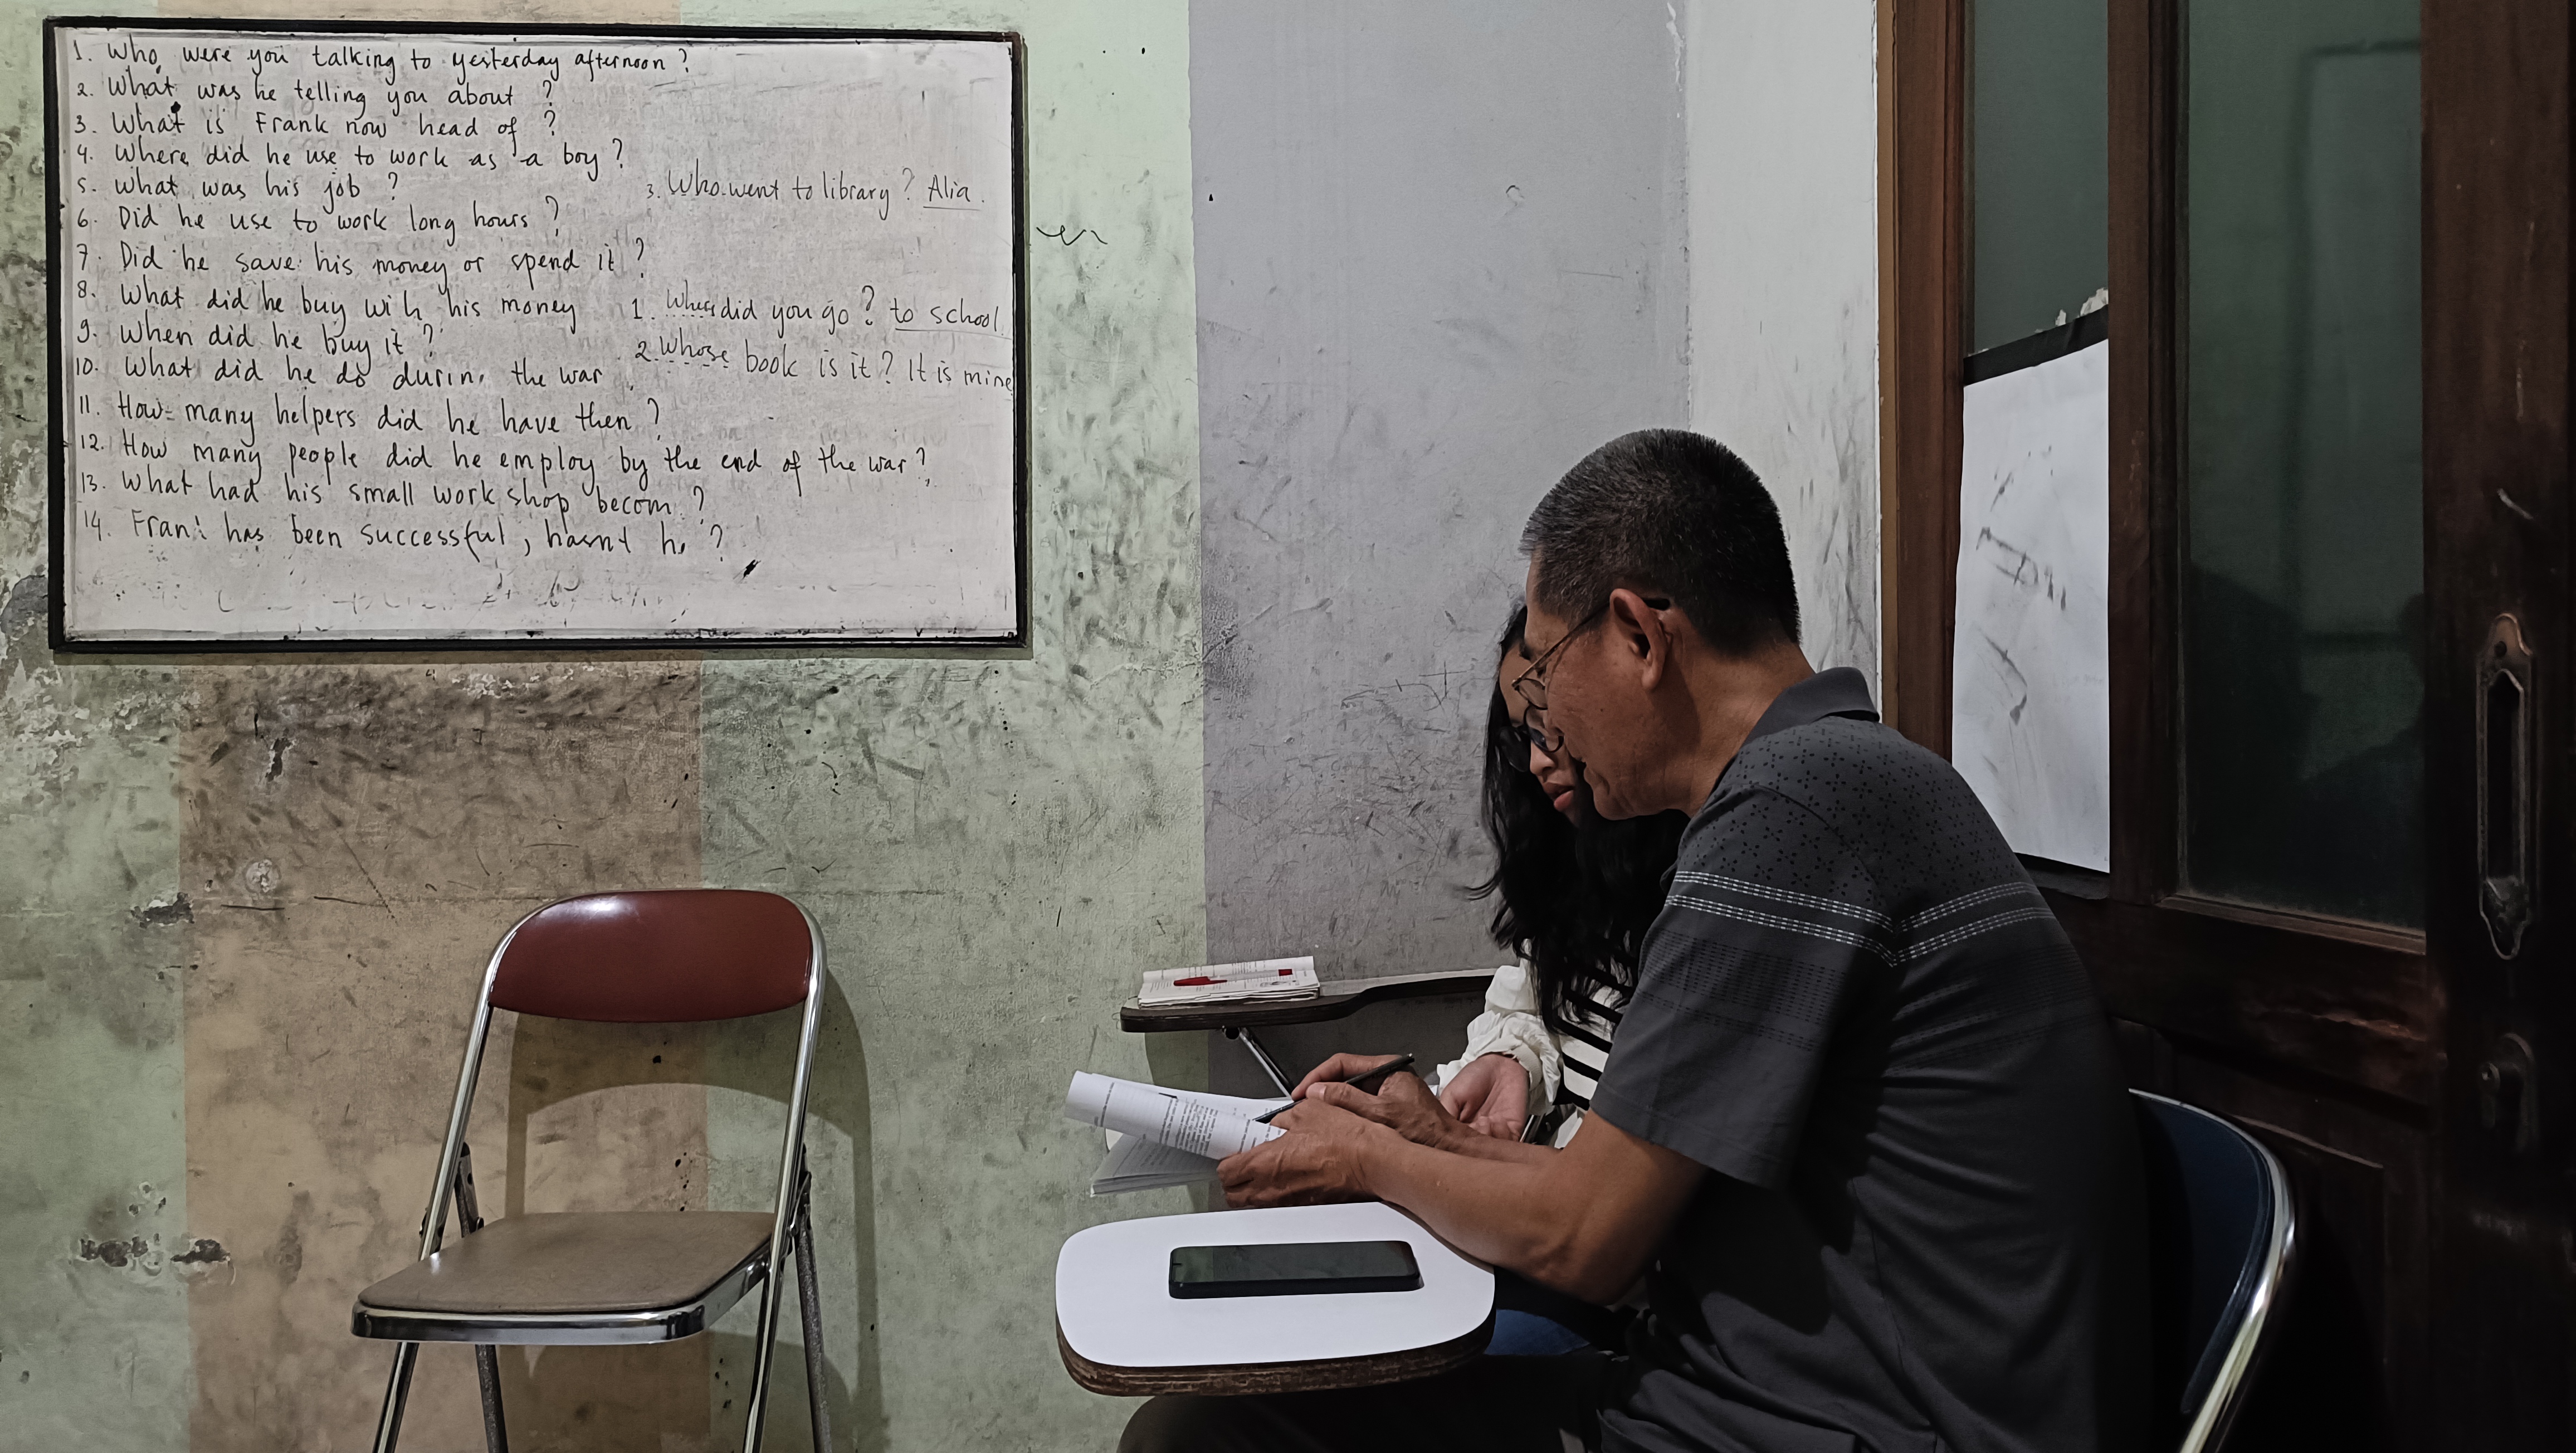 1. Who were you talking to yesterday afternoon?
2. What was he telling you about?
3. What is Frank now head of?
4. Where did he use to work as a boy?
5. What was his job?
6. Did he use to work long hours?
7. Did he save his money or spend it?
8. What did he buy wih his money
9. When did he buy it?
10. What did he do durin the war
11. How many helpers did he have then?
12. How many people did he employ by the end of the war?
13. What had his small work shop becom ?
14. Fran has been successful, hasnt h ?
3. Who went to library? Alia.
1. Where did you go? to school.
2. Whose book is it? It is mine